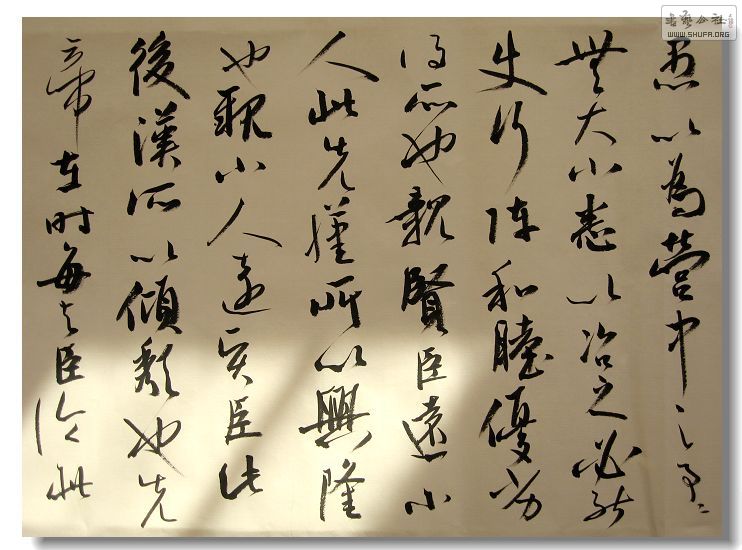 愚以為營中之事〻
無大小悉以治之必能
使行陣和睦優劣
得所也親賢臣遠小
人此先漢所以興隆
也親小人遠賢臣此
後漢所以傾頹也先
帝在時每与臣論此
书艺公社
WWW.SHUFA.ORG